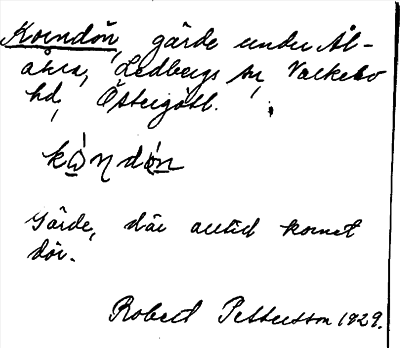 Korndön, gärde under Ål-
åkra, Ledbergs sn, Valkebo
hd, Östergötl.
kò̱ṇdó̱n
Gärde, där alltid kornet
dör.
Robert Pettersson 1929.